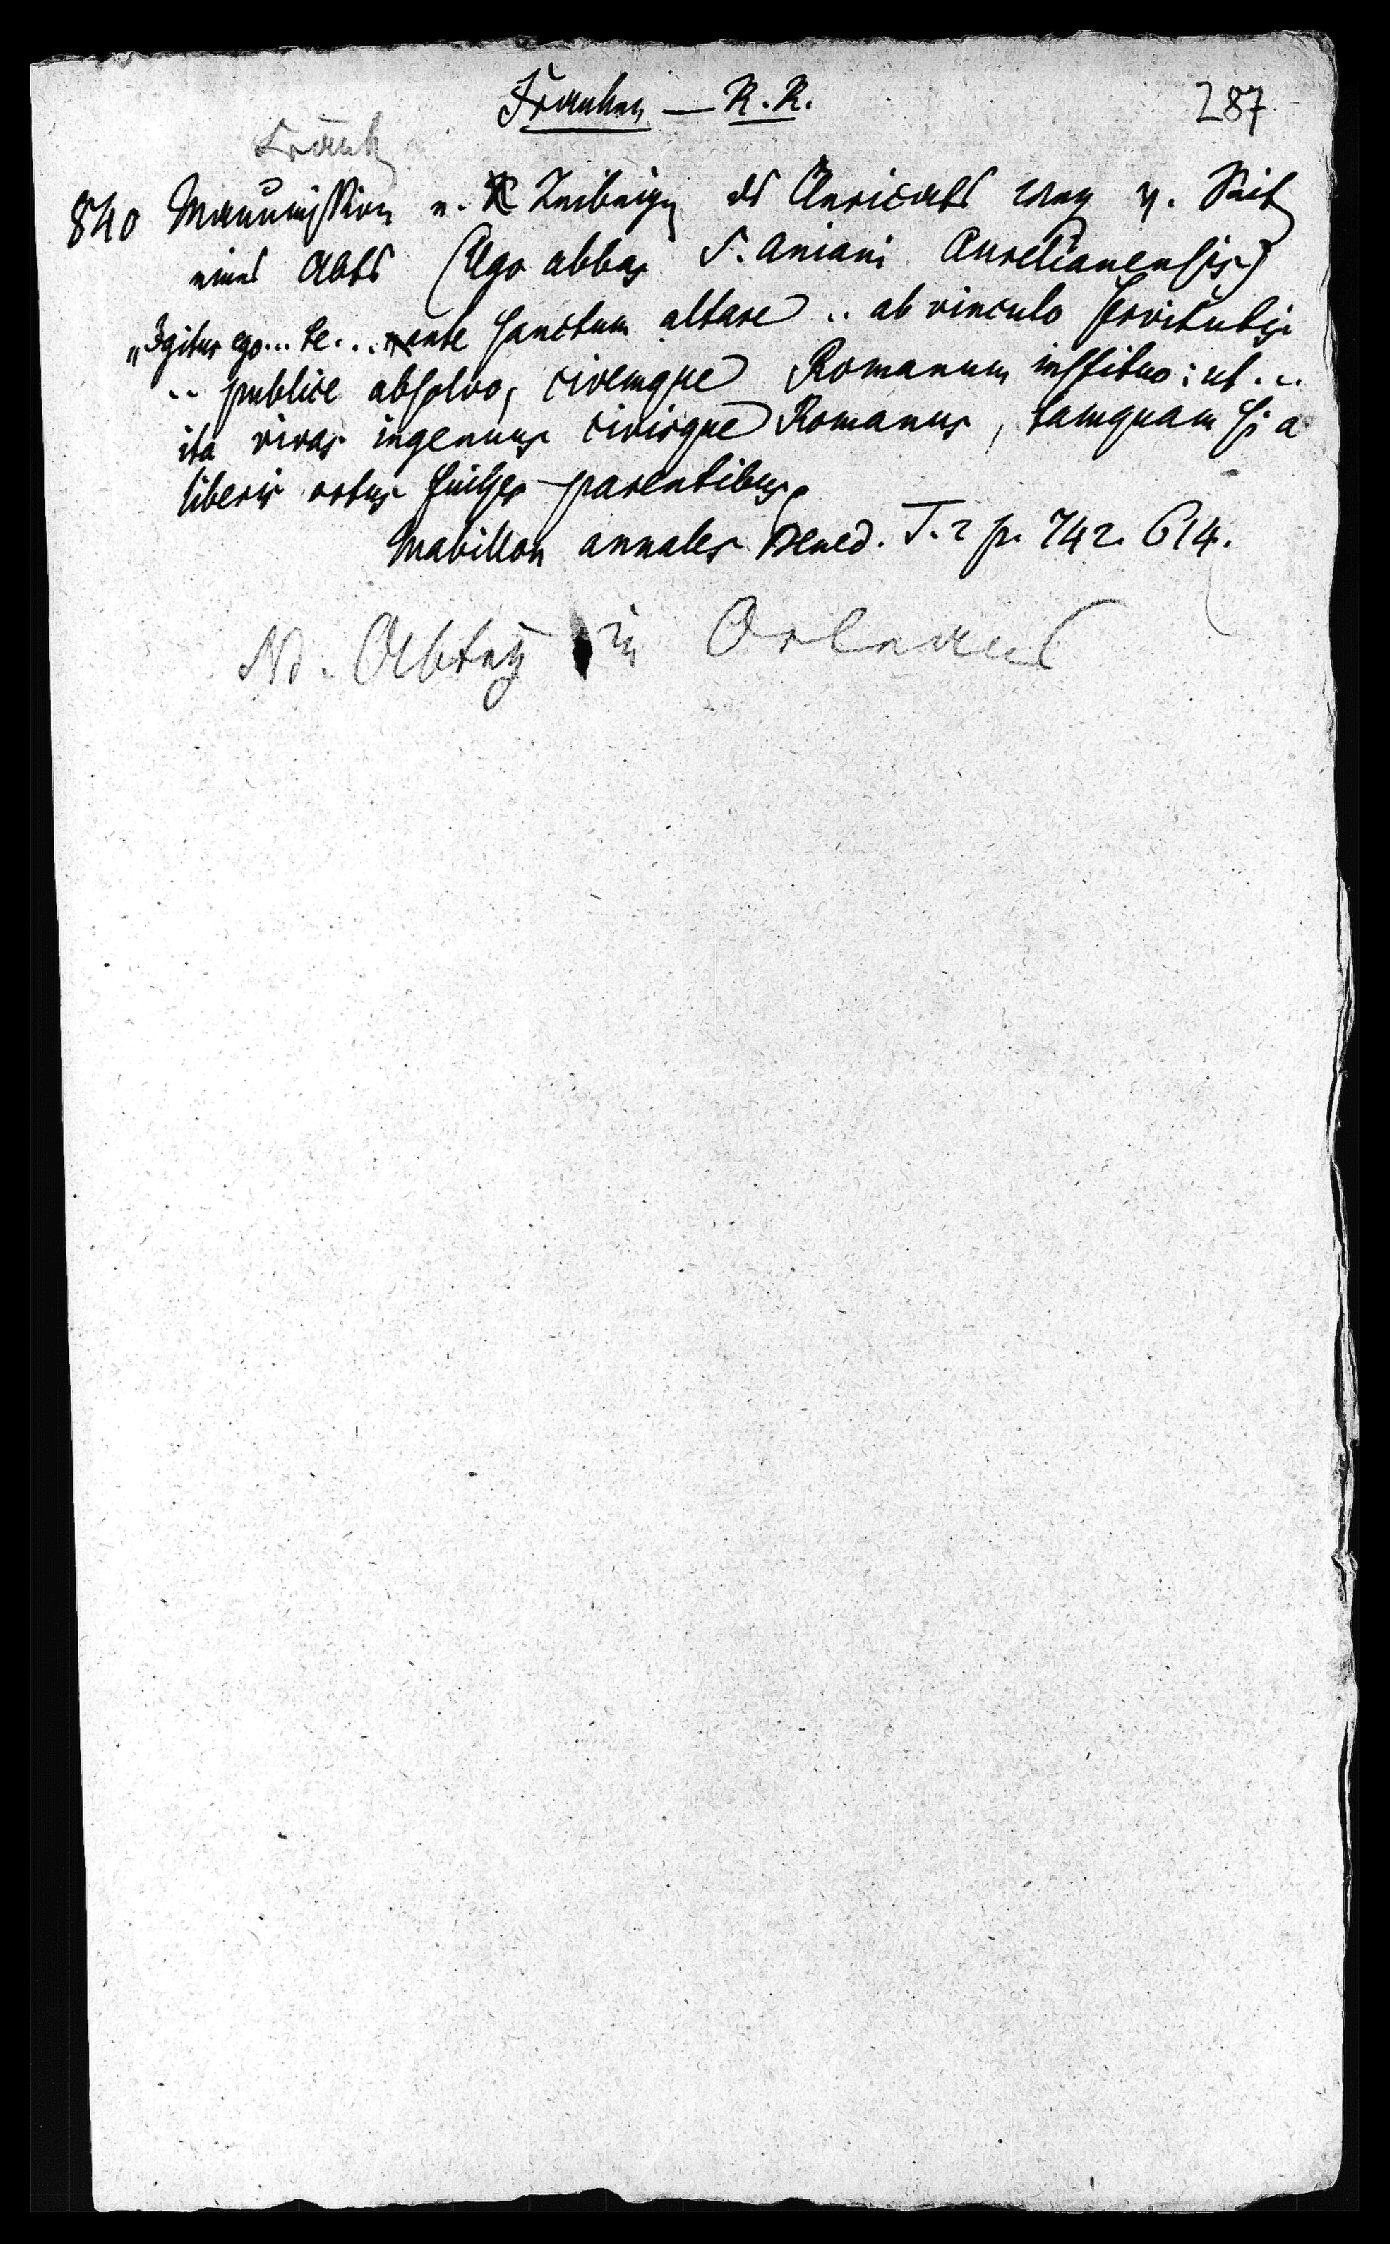 Franken — R. R.
287
Fränk
840 Manumission e. Leibeign ds Clericats weg v. Seit
eines Abts (Ugo abbas S. Aniani Aurelianensis)
„Igitur ego... te... ante sanctum altare .. ab vinculo servitutis
.. publice absolvo, civemque Romanum instituo: ut...
ita vivas ingenuus civisque Romanus, tamquam si a
liberis ortus fuisses parentibus
Mabillon annales Bened. T. 2 p. 742. 614.
in Orleans